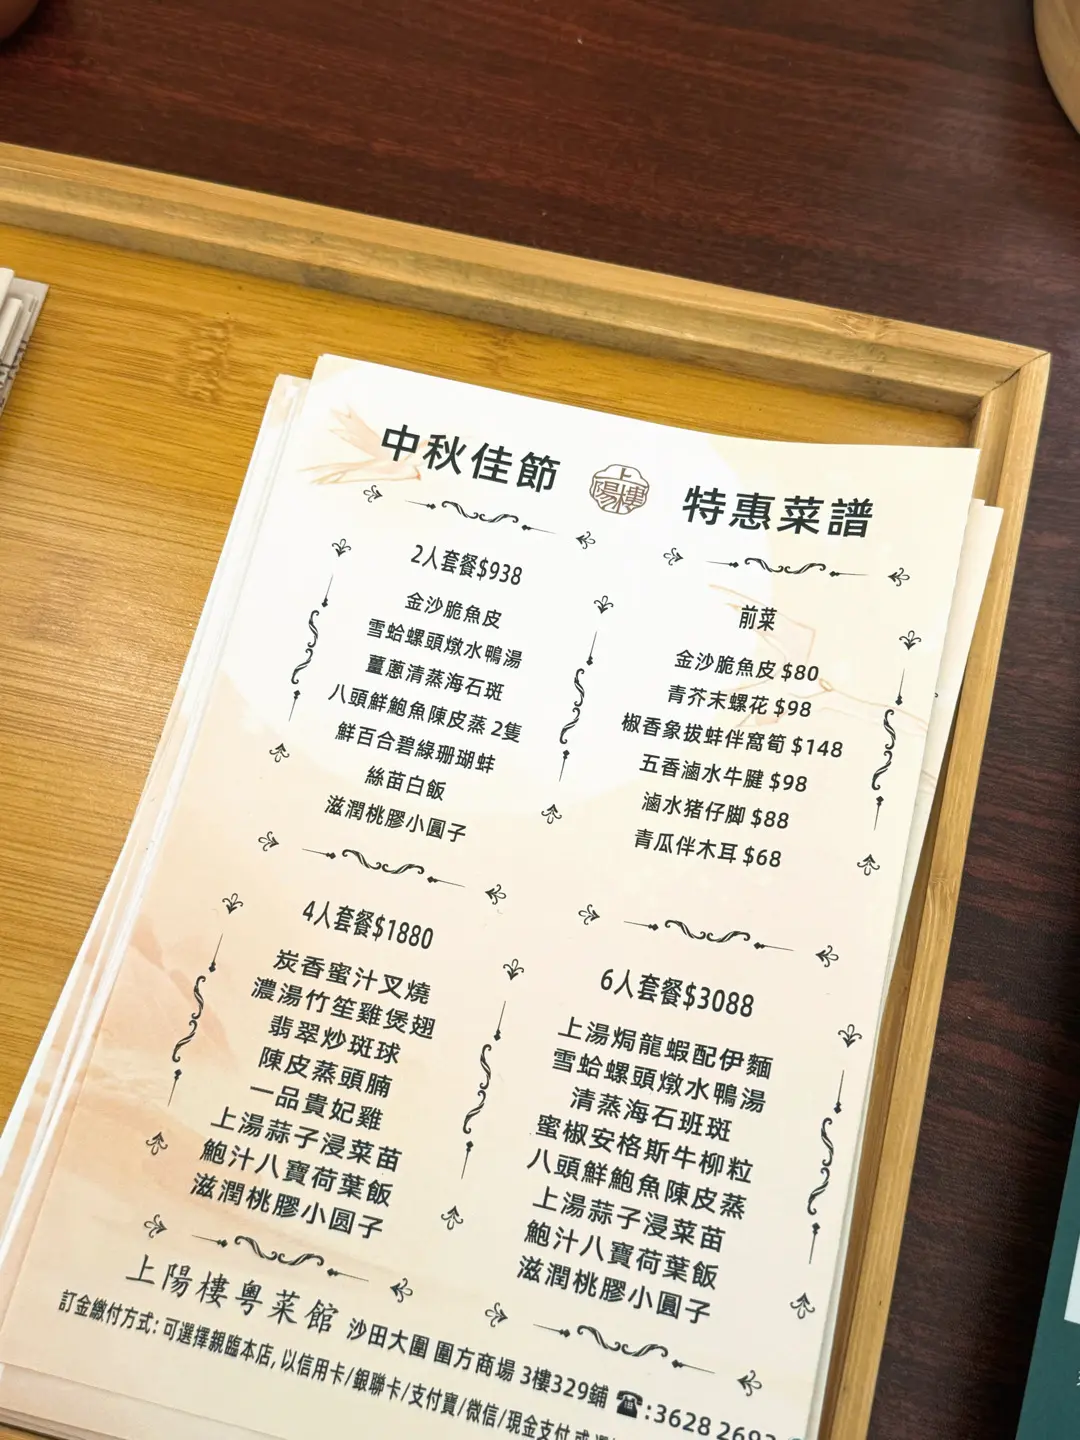 中秋佳節 上陽樓 特惠菜譜
2人套餐$938
金沙脆魚皮
雪蛤螺頭燉水鴨湯
薑蔥清蒸海石斑
八頭鮮鮑魚陳皮蒸 2隻
鮮百合碧綠珊瑚蚌
絲苗白飯
滋潤桃膠小圓子
前菜
金沙脆魚皮 $80
青芥末螺花 $98
椒香象拔蚌伴窩筍 $148
五香滷水牛腱 $98
滷水猪仔脚 $88
青瓜伴木耳 $68
4人套餐$1880
炭香蜜汁叉燒
濃湯竹笙雞煲翅
翡翠炒斑球
陳皮蒸頭腩
一品貴妃雞
上湯蒜子浸菜苗
鮑汁八寶荷葉飯
滋潤桃膠小圆子
6人套餐$3088
上湯焗龍蝦配伊麵
雪蛤螺頭燉水鴨湯
清蒸海石班斑
蜜椒安格斯牛柳粒
八頭鮮鮑魚陳皮蒸
上湯蒜子浸菜苗
鮑汁八寶荷葉飯
滋潤桃膠小圓子
上陽樓粤菜館 沙田大圍 圍方商場 3樓329鋪 ☎:3628 2693
訂金繳付方式: 可選擇親臨本店, 以信用卡/銀聯卡/支付寶/微信/現金支付 或